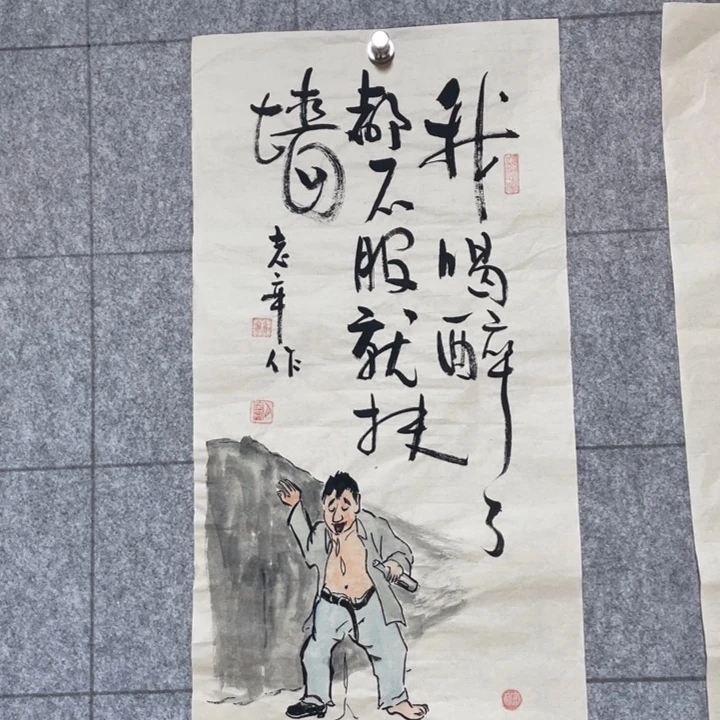 我喝醉了
都不服就扶
墙
志辛作